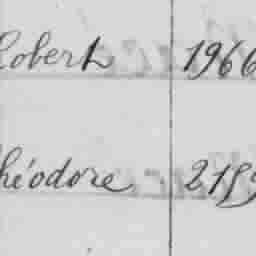 Robert 1966
Théodore 2159